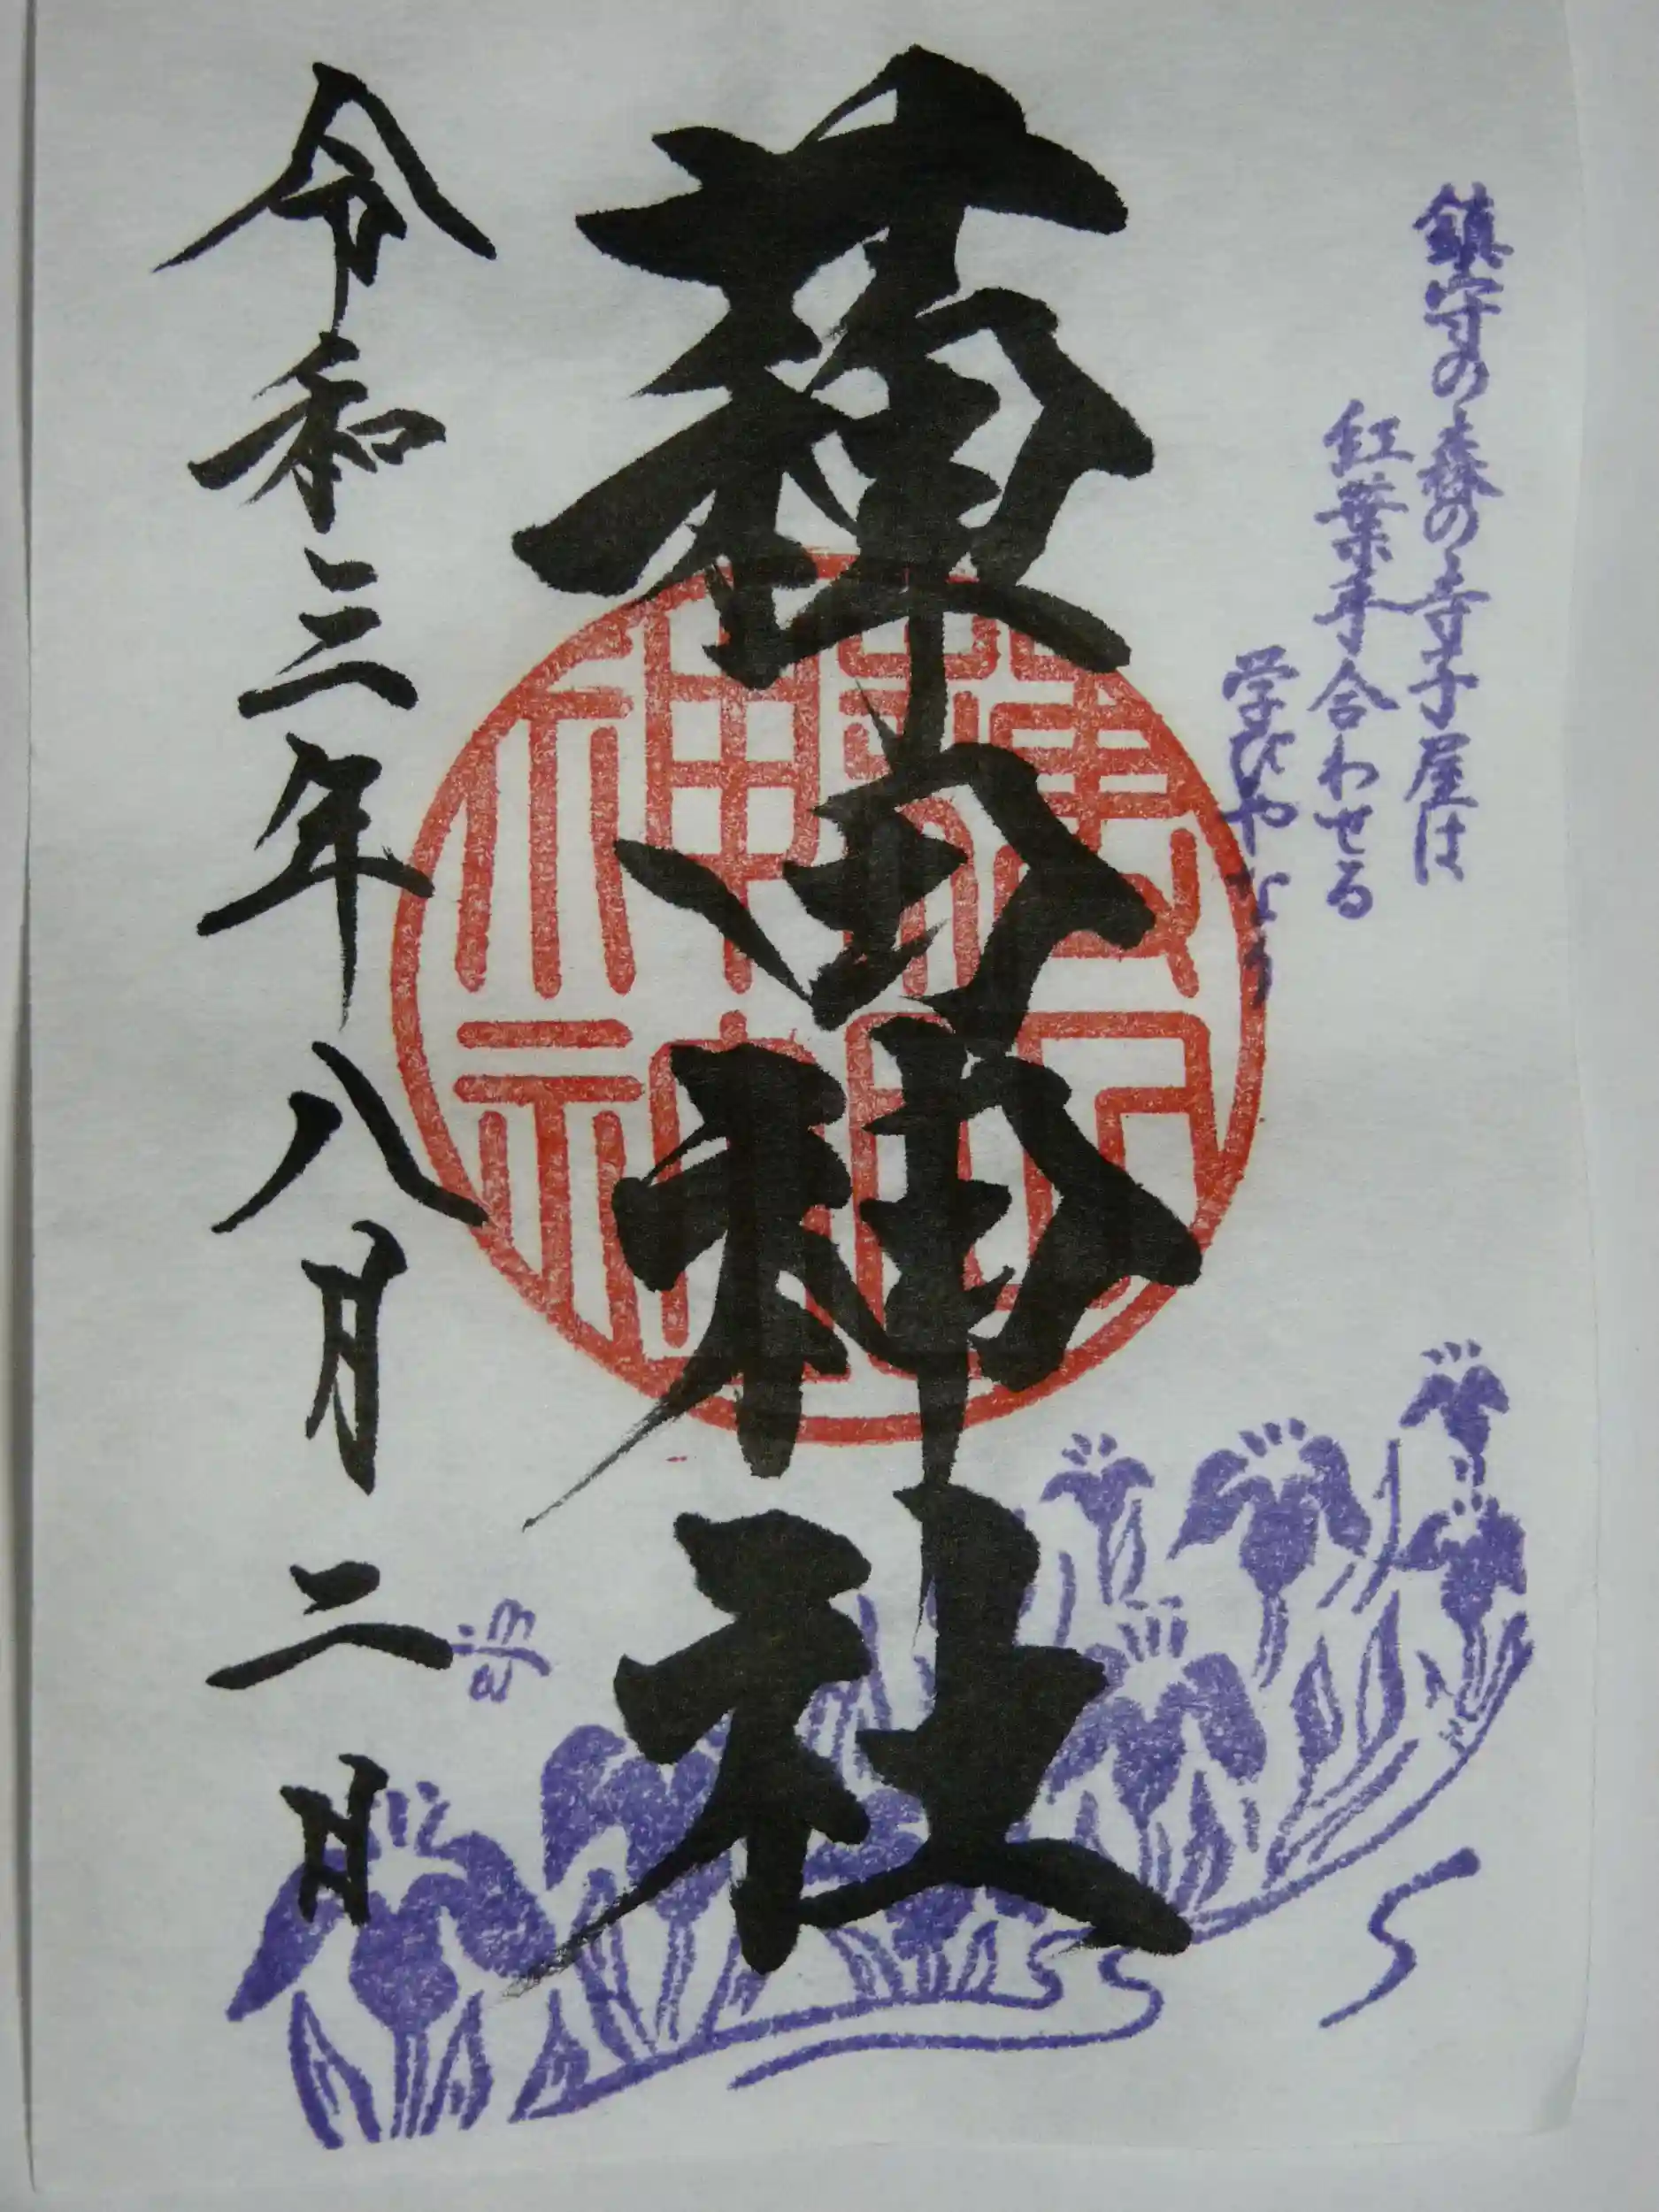 鎮守の森の寺子屋は
紅葉手合わせる
学びやなり
薭田神社
令和三年八月二日